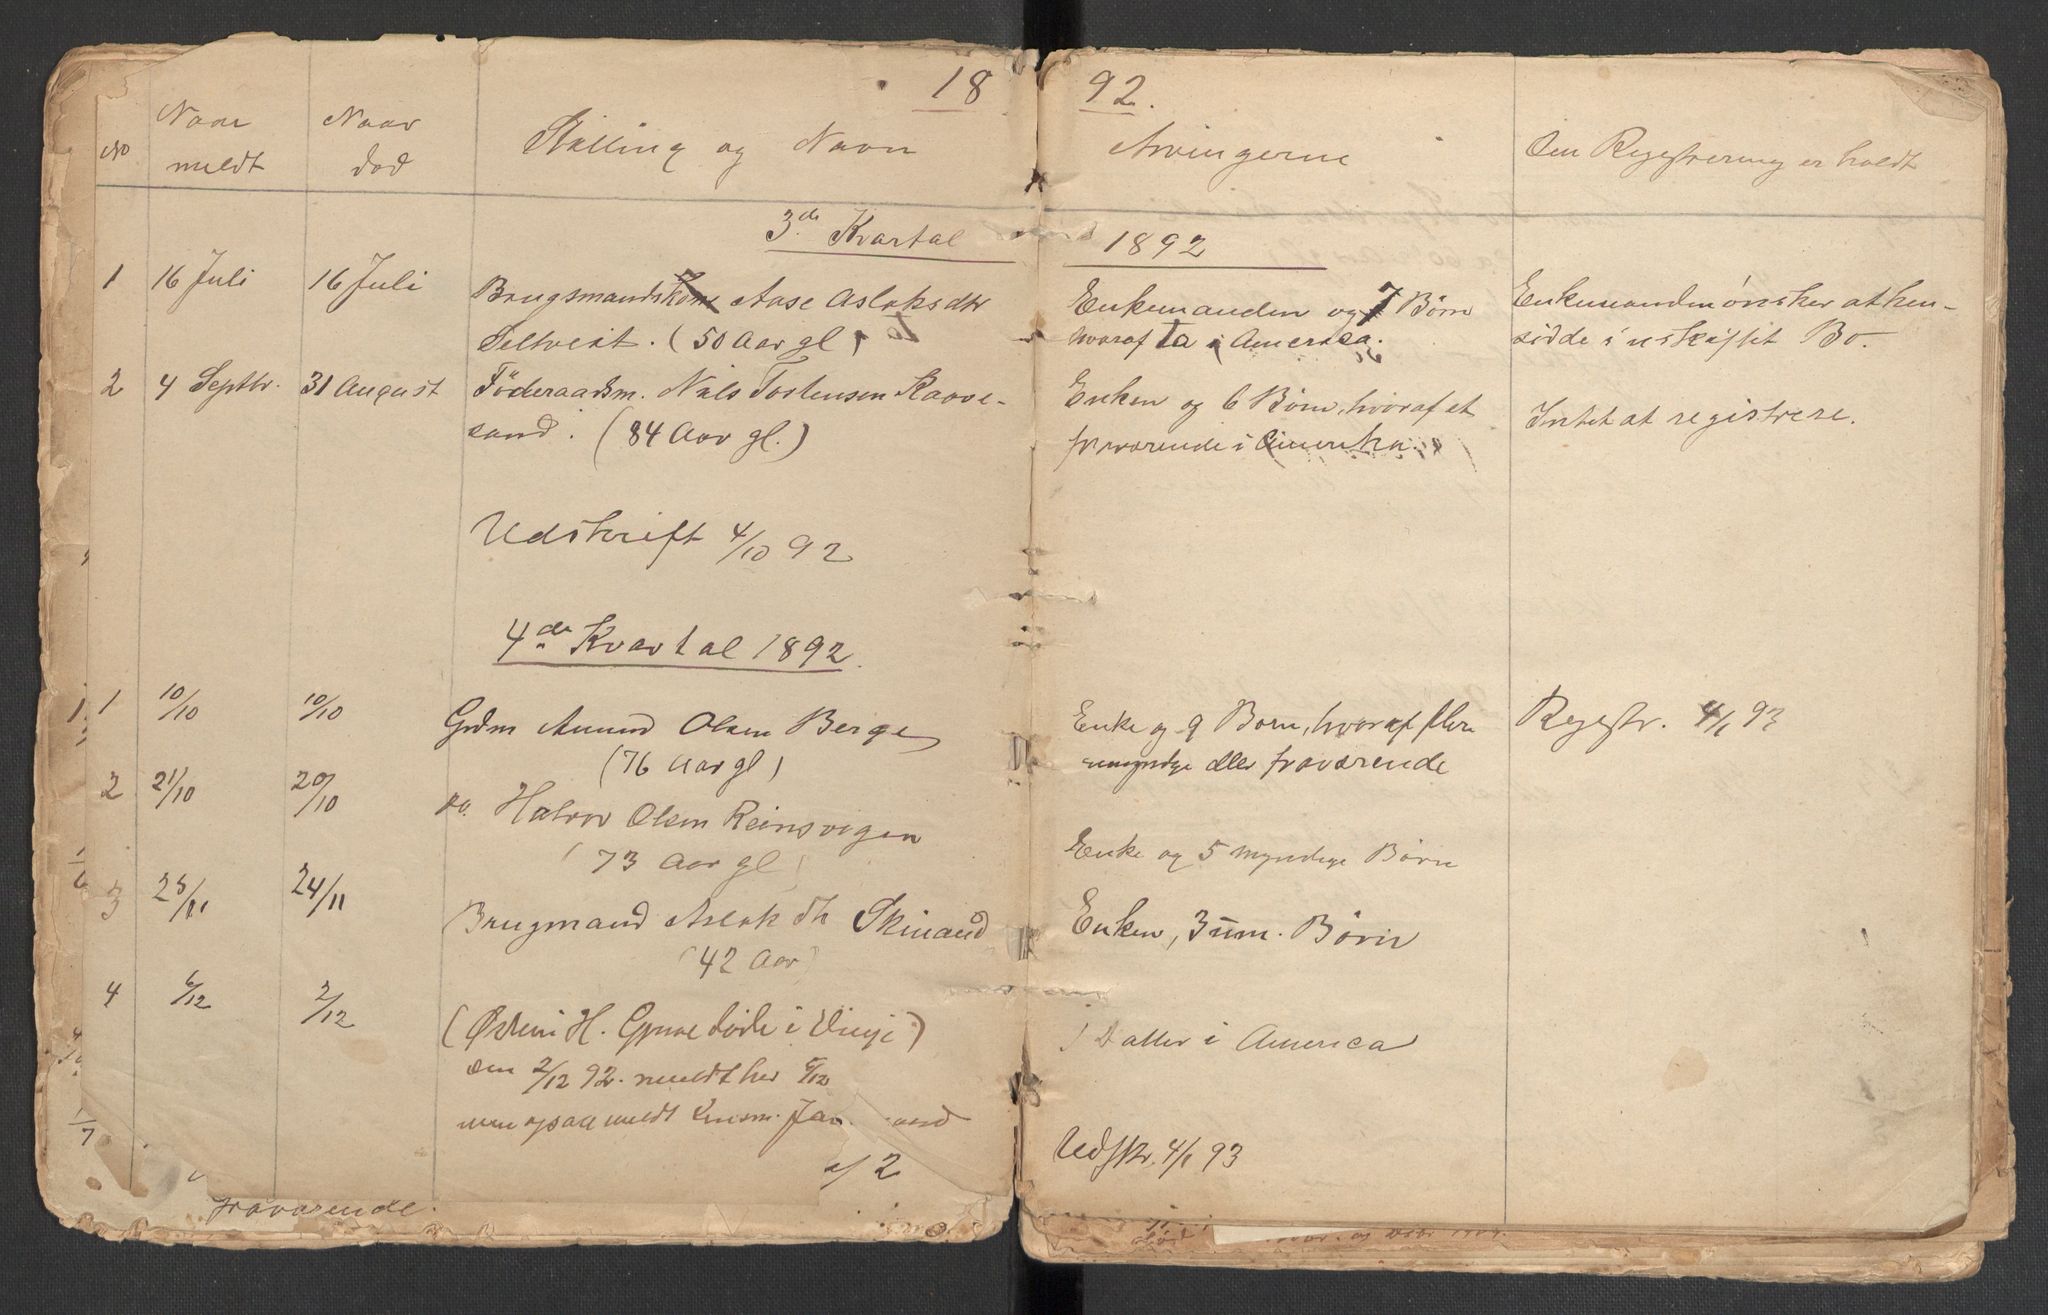 18 92.
No
Naar meldt
Naar død
Stilling og Navn
Arvingerne
Om Registrering er holdt
3de Kvartal 1892
1 16 Juli 16 Juli Brugsmandskone Aase Aslaksdtr Enkemanden og 7 Børn Enkemanden ønsker at hen-
Seltveit. (50 Aar gl) hvoraf to i America. sidde i uskiftet Bo.
2 4 Septbr. 31 August Föderaadsm. Nils Torstensen Raave- Enken og 6 Børn, hvoraf et Intet at registrere.
sand. (84 Aar gl.) fraværende i Amerika.
Udskrift 4/10 92
4de Kvartal 1892.
1 10/10 10/10 Grdm Amund Olsen Berge Enke og 9 Børn, hvoraf flere Regestr. 4/1 93
(76 Aar gl) umyndige eller fraværende
2 21/10 20/10 Halvor Olsen Reinsvigen
(73 Aar gl) Enke og 5 myndige Børn
3 25/11 24/11 Brugmand Aslak Skinand Enken, 3 um. Børn
(42 Aar)
4 6/12 2/12 (Østein H. døde i Vinje) 1 Datter i America
den 2/12 92. meldt her 6/12
men ogsaa meldt Lensm.
Udskr. 4/1 93
2
fraværende.